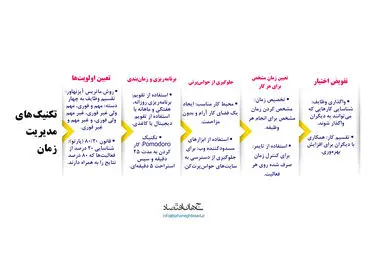 تکنیک‌های
مدیریت
زمان
تعیین اولویت‌ها
• روش ماتریس آیزنهاور:
تقسیم وظایف به چهار
دسته: مهم و فوری، مهم
ولی غیر فوری، غیر مهم
ولی فوری، و غیر مهم و
غیر فوری.
• قانون ۲۰/۸۰ (پارتو):
شناسایی ۲۰ درصد از
فعالیت‌ها که ۸۰ درصد
نتایج را به همراه دارند.
برنامه‌ریزی و زمان‌بندی
• استفاده از تقویم:
برنامه‌ریزی روزانه،
هفتگی و ماهانه با
استفاده از تقویم
دیجیتال یا کاغذی.
• تکنیک
Pomodoro: کار
کردن به مدت ۲۵
دقیقه و سپس
استراحت ۵ دقیقه‌ای.
جلوگیری از حواس‌پرتی
• محیط کار مناسب: ایجاد
یک فضای کار آرام و بدون
مزاحمت.
• استفاده از ابزارهای
مسدودکننده وب: برای
جلوگیری از دسترسی به
سایت‌های حواس‌پرت‌کن.
تعیین زمان مشخص
برای هر کار
• تخصیص زمان:
مشخص کردن زمان
مشخص برای انجام هر
وظیفه.
• استفاده از تایمر:
برای کنترل زمان
صرف شده روی هر
فعالیت.
تفویض اختیار
• واگذاری وظایف:
شناسایی کارهایی که
می‌توانند به دیگران
واگذار شوند.
• تقسیم کار: همکاری
با دیگران برای افزایش
بهره‌وری.